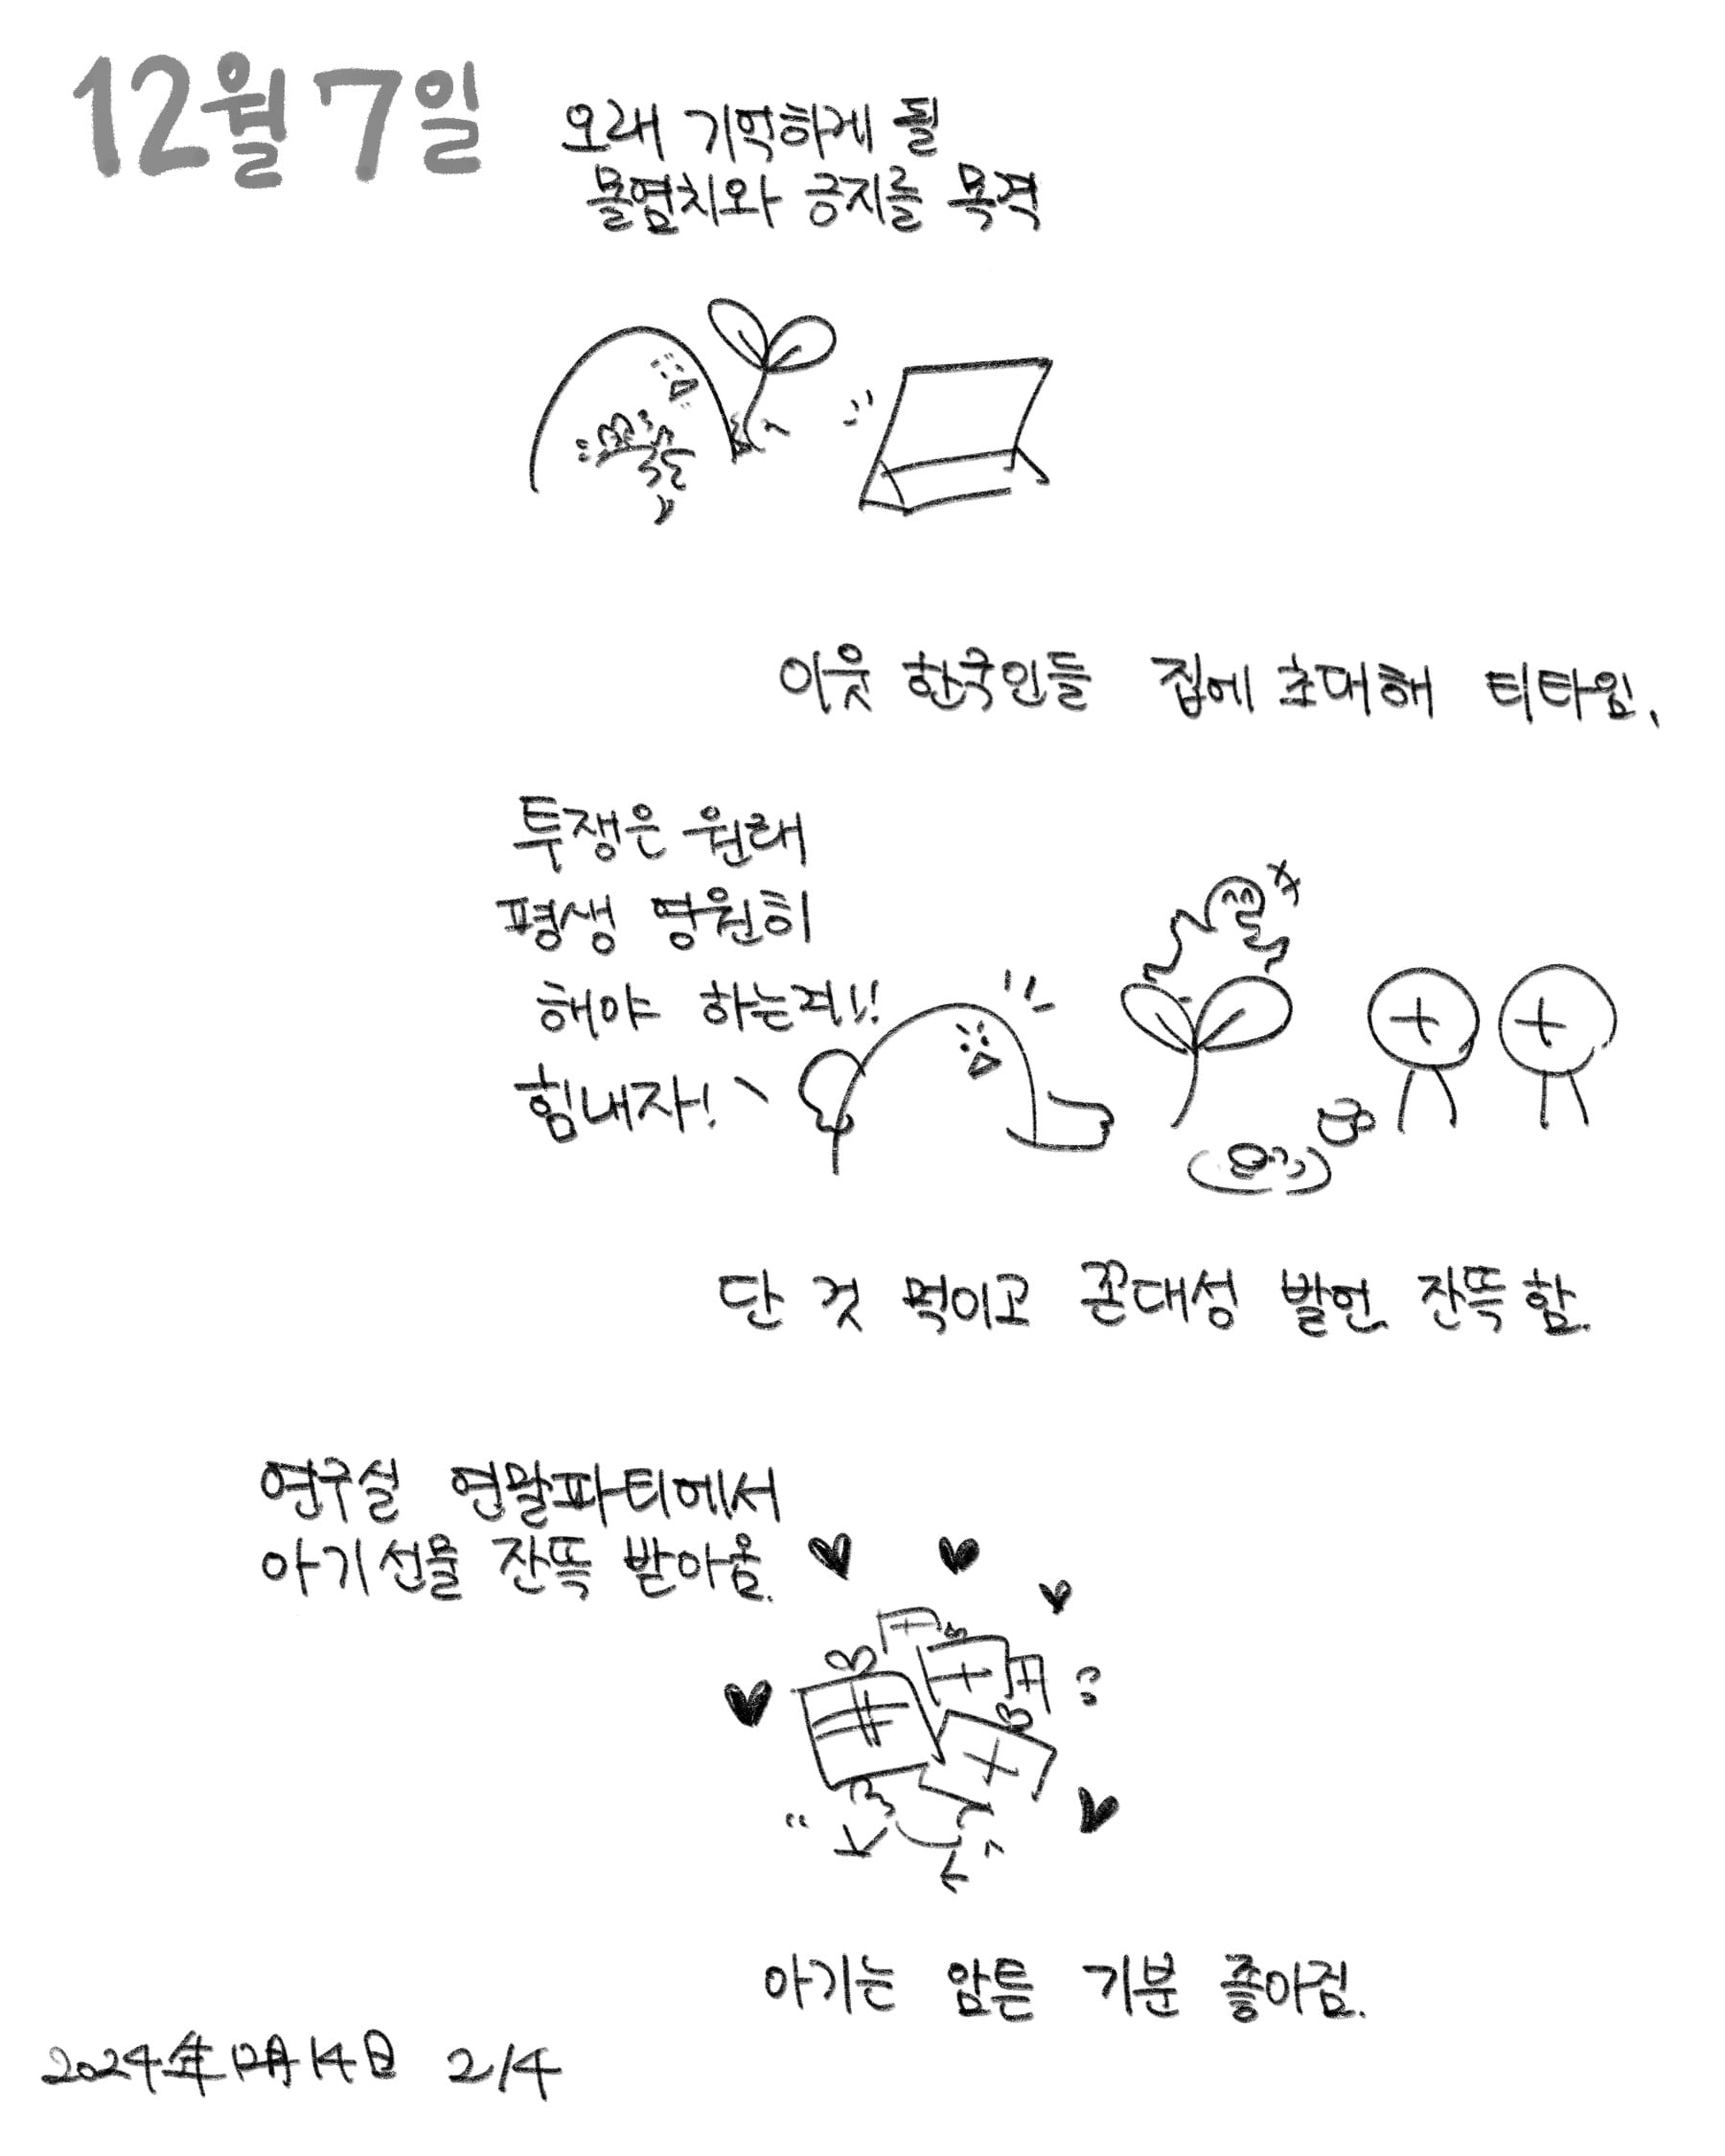 12월 7일
오래 기억하게 될
몰염치와 긍지를 목격
이웃 한국인들 집에 초대해 티타임.
투쟁은 원래
평생 영원히
해야 하는겨!!
힘내자!
단 것 먹이고 꼰대성 발언 잔뜩 함.
연구실 연말파티에서
아기선물 잔뜩 받아옴.
아기는 암튼 기분 좋아짐.
2024年12月14日 2/4